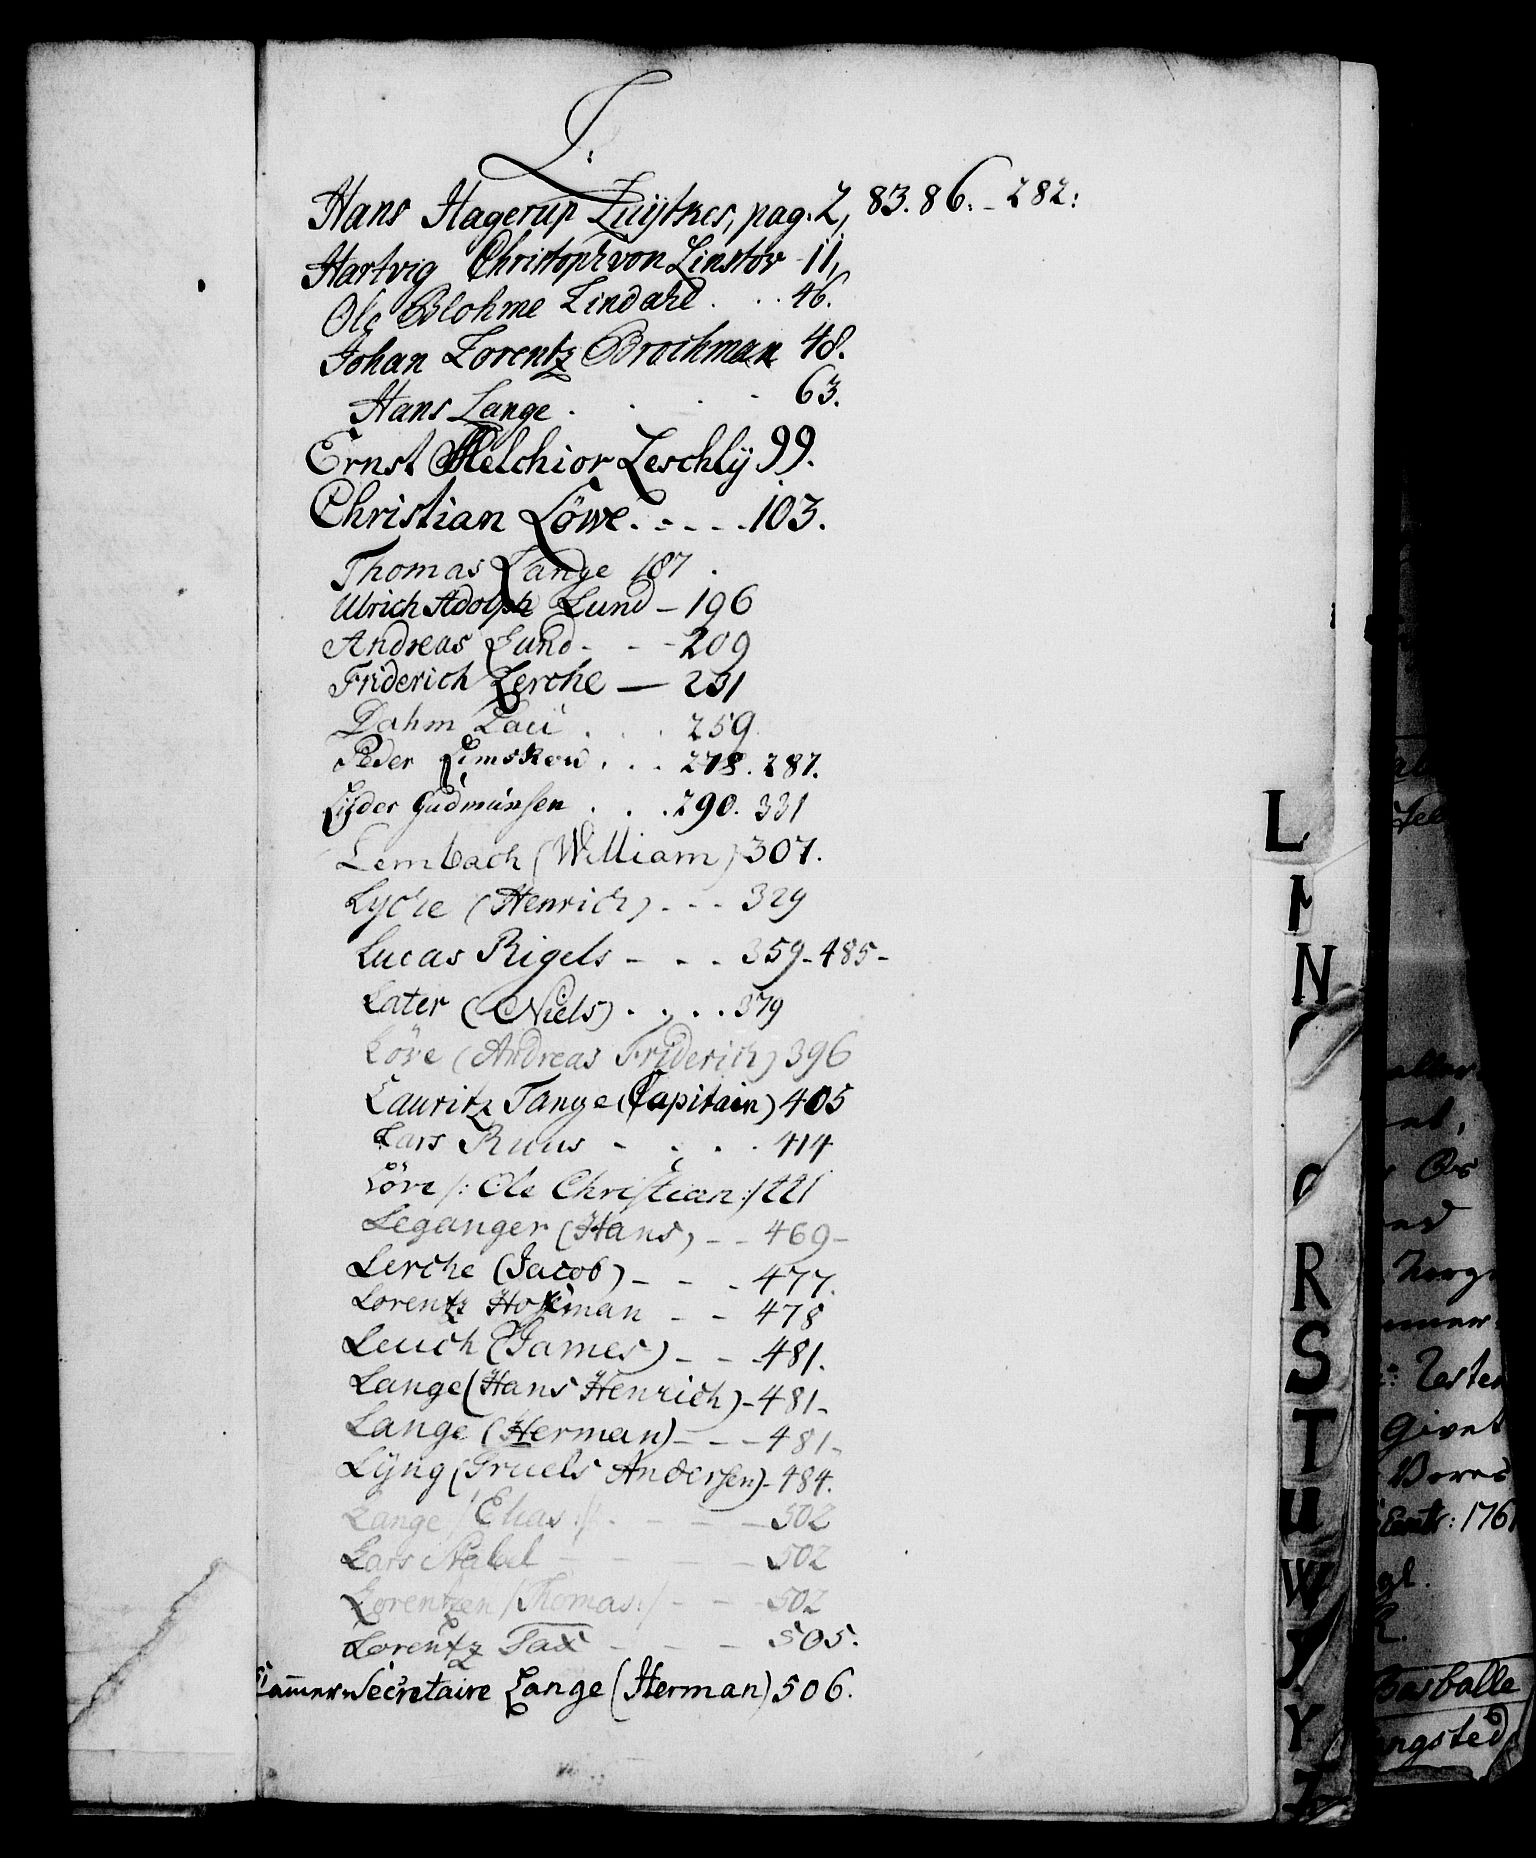 L.
Hans Hagerup Luytkes, pag. 2, 83. 86. - 282:
Hartvig Christoph von Linstov - 11,
Ole Blohme Lindahl . . . 46.
Johan Lorentz Brochman 48.
Hans Lange . . . . 63.
Ernst Melchior Leschly 99.
Christian Löwe . - - - - 103.
Thomas Lange 187 .
Ulrich Adolph Lund - 196
Andreas Lund - - - 209
Friderich Lerche — 231
Dahm Lau . . . 259.
Peder Limskou . . . 278. 287.
Gudmunsen . . . 290. 331
Lembach (William) 307.
Lyche (Henrich) . - - 329
Lucas Rigels - - - 359 - 485 -
Later (Niels) . . . . 379
Löve (Andreas Friderich) 396
Lauritz Tange (Capitain) 405
Lars Ruus - . . . 414
Löve /: Ole Christian :/ 421
Leganger (Hans) - - 469 -
Lerche (Jacob) - - - 477.
Lorentz Hofman - - 478
Leuch (James) - - - 481.
Lange (Hans Henrich) - 481 -
Lange (Herman) - - - 481 -
Lyng (Truels Andersen) - 484.
Lange /: Elias :/ - - - - 502
Lars - - - - 502
Lorentzen /: Thomas :/ - - - 502
Lorentz Fax - - - 505.
Cammer-Secretaire Lange (Herman) 506.
L
N
R
S
T
U
W
Y
Givet
1761